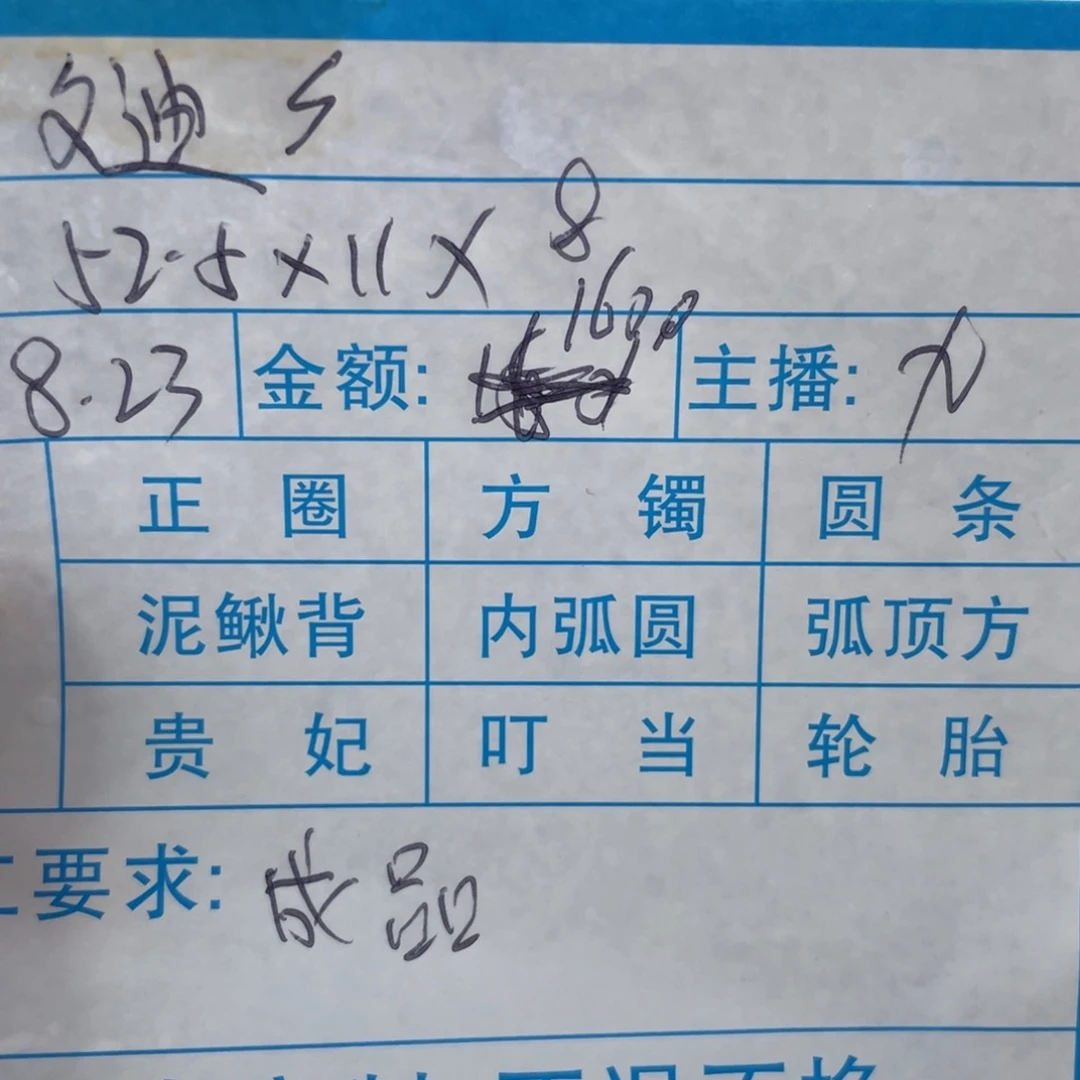 文迪 5
52.5×11×8
8.23 金额: 1600 主播:
正圈 方镯 圆条
泥鳅背 内弧圆 弧顶方
贵妃 叮当 轮胎
工要求: 成品